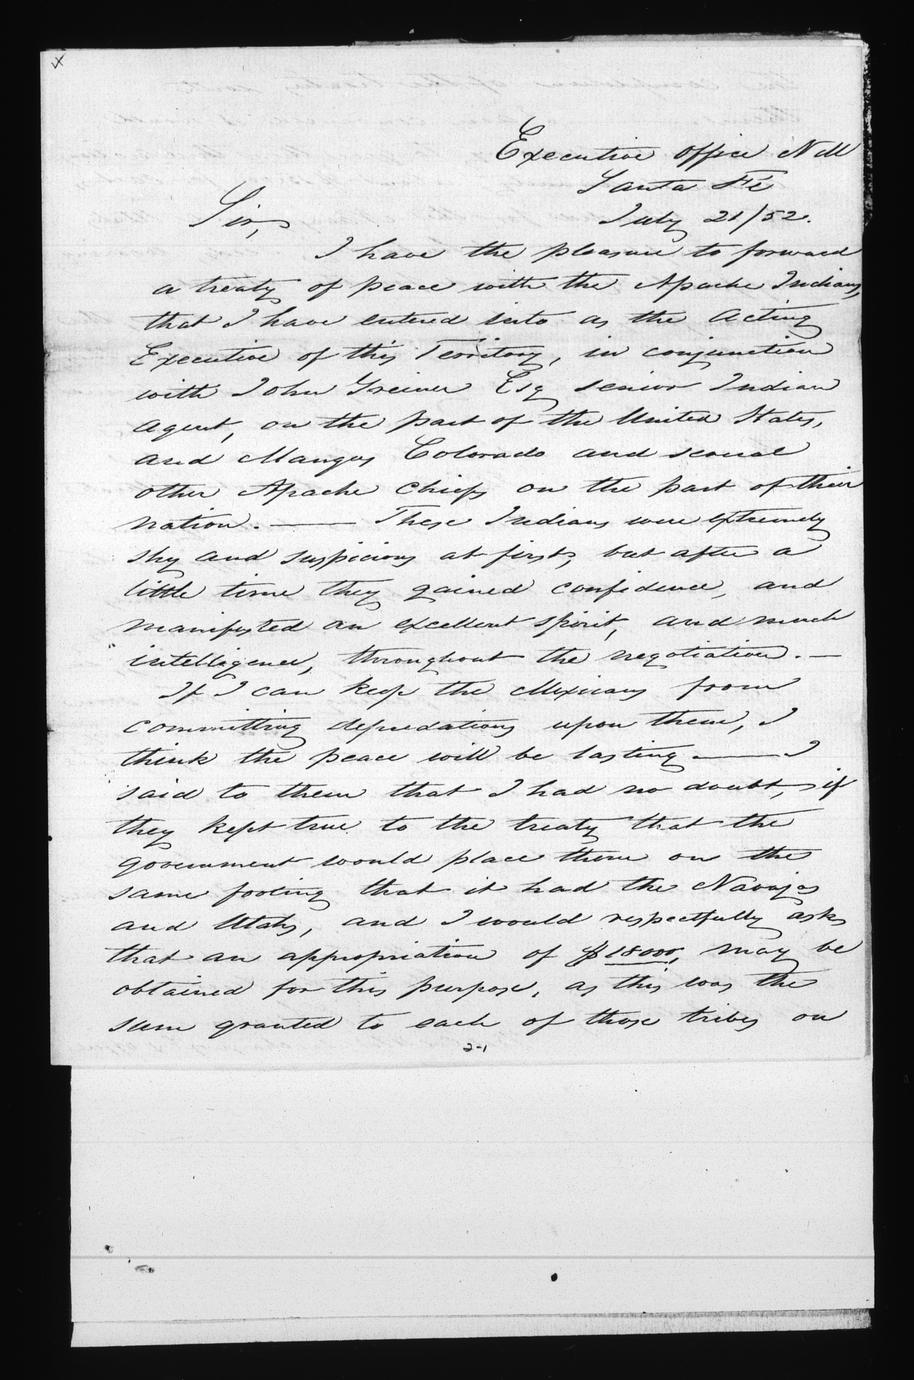 x
Executive Office N M
Santa Fé
July 21/52.
Sir,
I have the pleasure to forward
a treaty of peace with the Apache Indians,
that I have entered into as the acting
Executive of this Territory, in conjunction
with John Greiner Esq senior Indian
agent, on the part of the United States,
and Mangus Colorado and several
other Apache chiefs on the part of their
nation. — These Indians were extremely
shy and suspicious at first, but after a
little time they gained confidence, and
manifested an excellent spirit, and much
intelligence, throughout the negotiation. —
If I can keep the Mexicans from
committing depredations upon them, I
think the peace will be lasting — I
said to them that I had no doubt, if
they kept true to the treaty that the
government would place them on the
same footing that it had the Navajos
and Utahs, and I would respectfully ask
that an appropriation of $18000, may be
obtained for this purpose, as this was the
sum granted to each of those tribes on
2-1